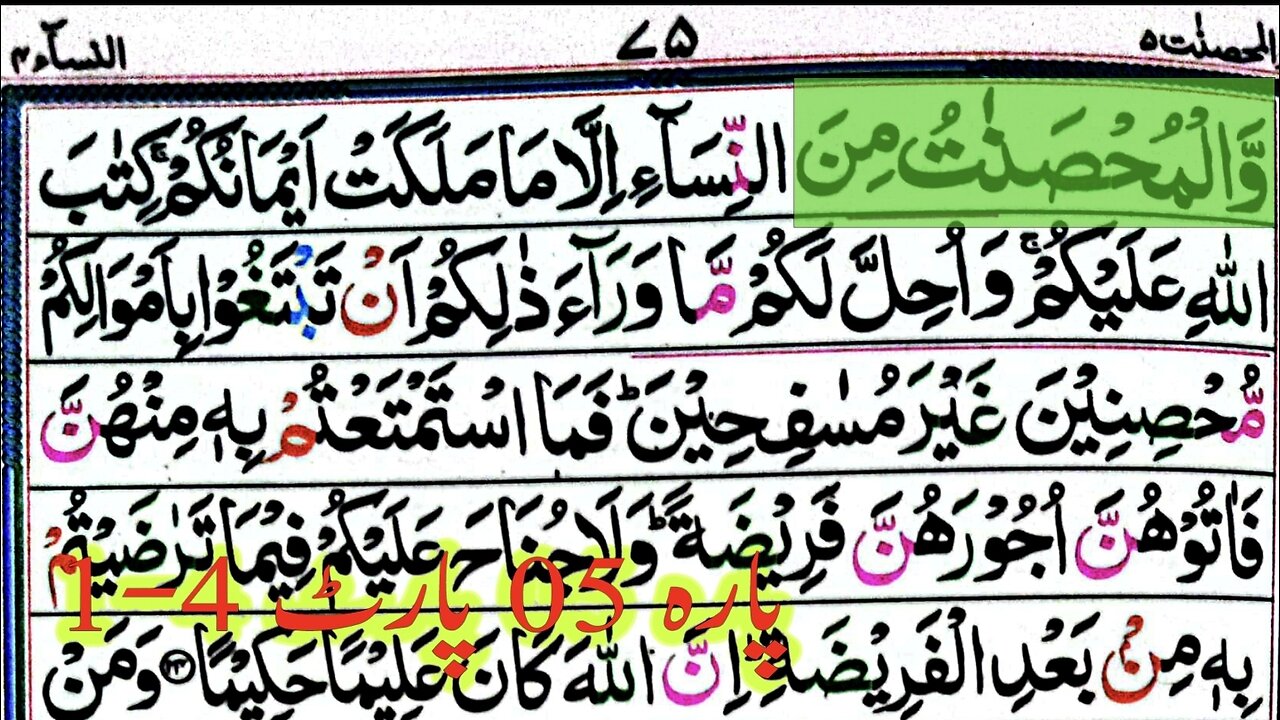 المحصنٰت ۵ ۷۵ النسآء ۴
وَّالْمُحْصَنٰتُ مِنَ النِّسَآءِ اِلَّا مَا مَلَكَتْ اَیْمَانُكُمْ ۚ كِتٰبَ
اللّٰهِ عَلَیْكُمْ ۚ وَ اُحِلَّ لَكُمْ مَّا وَرَآءَ ذٰلِكُمْ اَنْ تَبْتَغُوْا بِاَمْوَالِكُمْ
مُّحْصِنِیْنَ غَیْرَ مُسٰفِحِیْنَ ؕ فَمَا اسْتَمْتَعْتُمْ بِهٖ مِنْهُنَّ
فَاٰتُوْهُنَّ اُجُوْرَهُنَّ فَرِیْضَةً ؕ وَلَا جُنَاحَ عَلَیْكُمْ فِیْمَا تَرٰضَیْتُمْ
پارہ 05 پارٹ 4–1
بِهٖ مِنْۢ بَعْدِ الْفَرِیْضَةِ ؕ اِنَّ اللّٰهَ كَانَ عَلِیْمًا حَكِیْمًا ۝۲۴ وَمَنْ